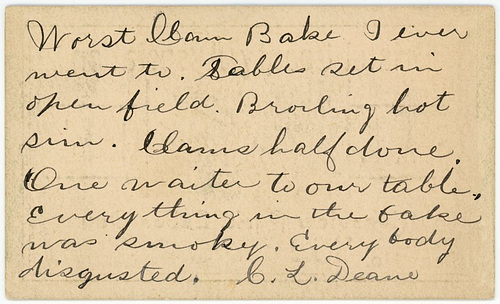 Worst Clam Bake I ever
went to. Tables set in
open field. Broiling hot
sun. Clams half done.
One waiter to our table.
Everything in the bake
was smoky. Every body
disgusted. C. L. Deane